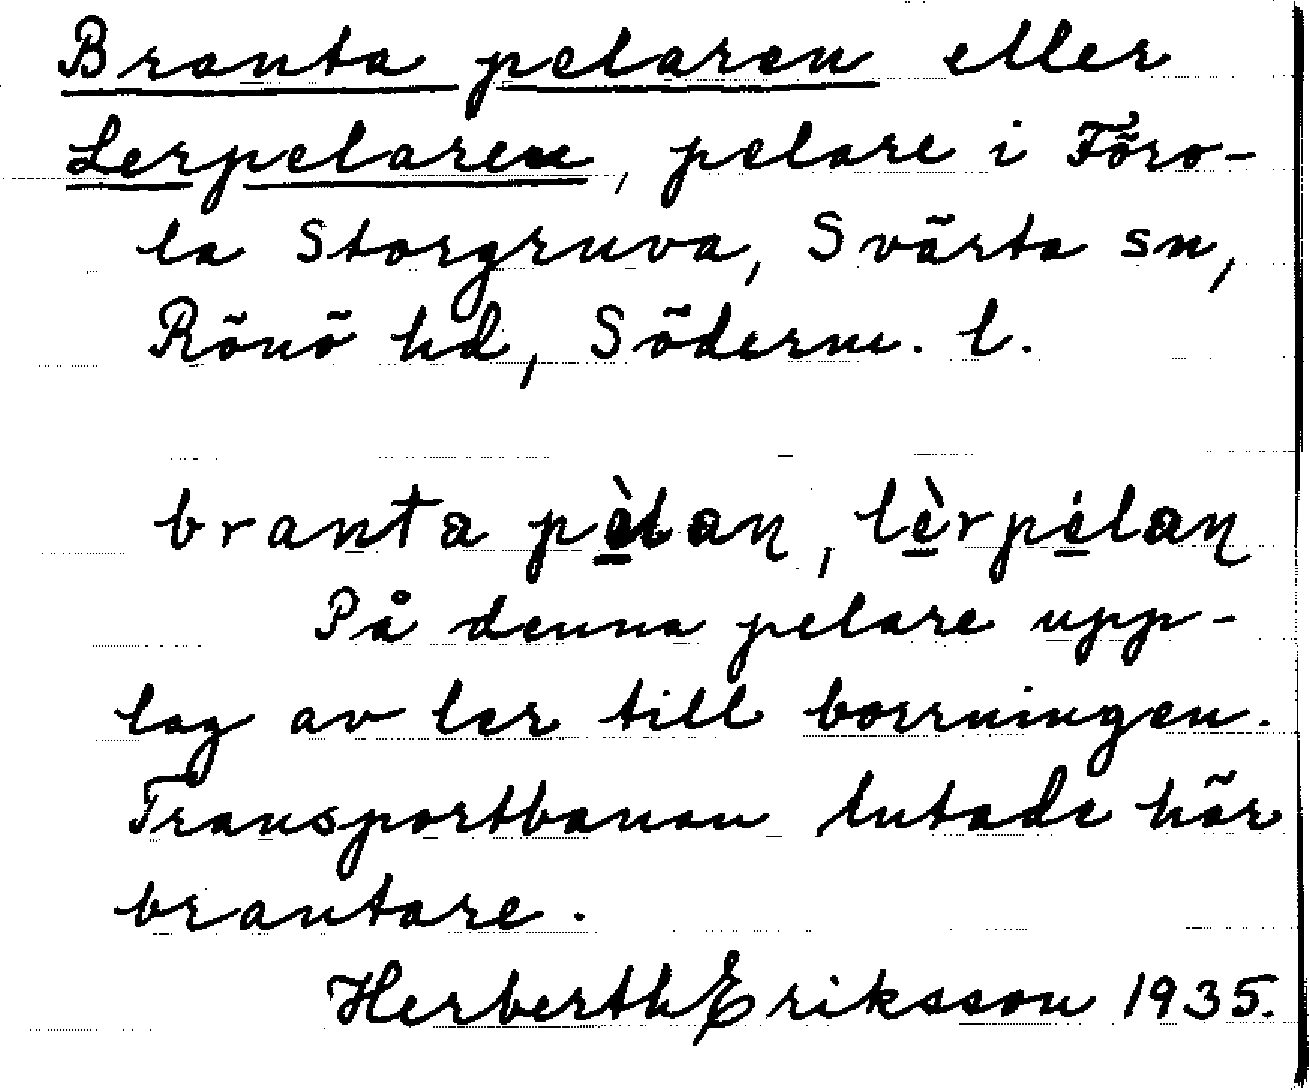 Branta pelaren eller
Lerpelaren, pelare i Föro-
la Storgruva, Svärta sn,
Rönö hd, Söderm. l.
branta pèlan, lèrpélan
På denna pelare upp-
lag av ler till borrningen.
Transportbanan lutade här
brantare.
Herberth Eriksson 1935.